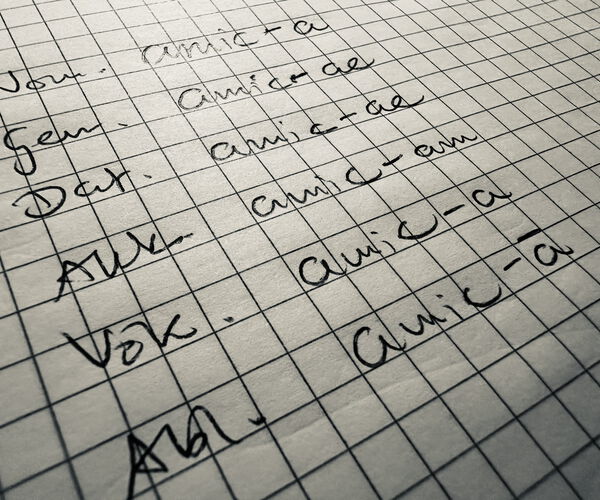 Nom. amic-a
Gen. amic-ae
Dat. amic-ae
Akk. amic-am
Vok. amic-a
Abl. amic-ā